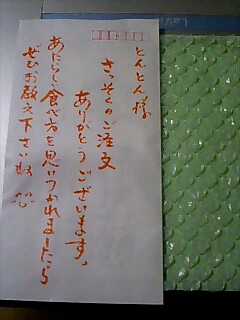 とんとん様
さっそくのご注文
ありがとうございます。
あたらしい食べ方を思いつかれましたら
ぜひお教え下さいね